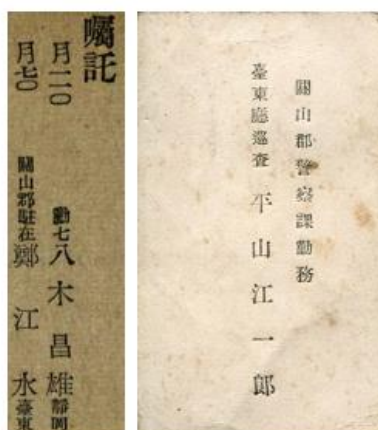 囑託
月二〇 勳七 八木昌雄 靜岡
月七〇 關山郡駐在 鄭江水 臺東
關山郡警察課勤務
臺東廳巡查 平山江一郎